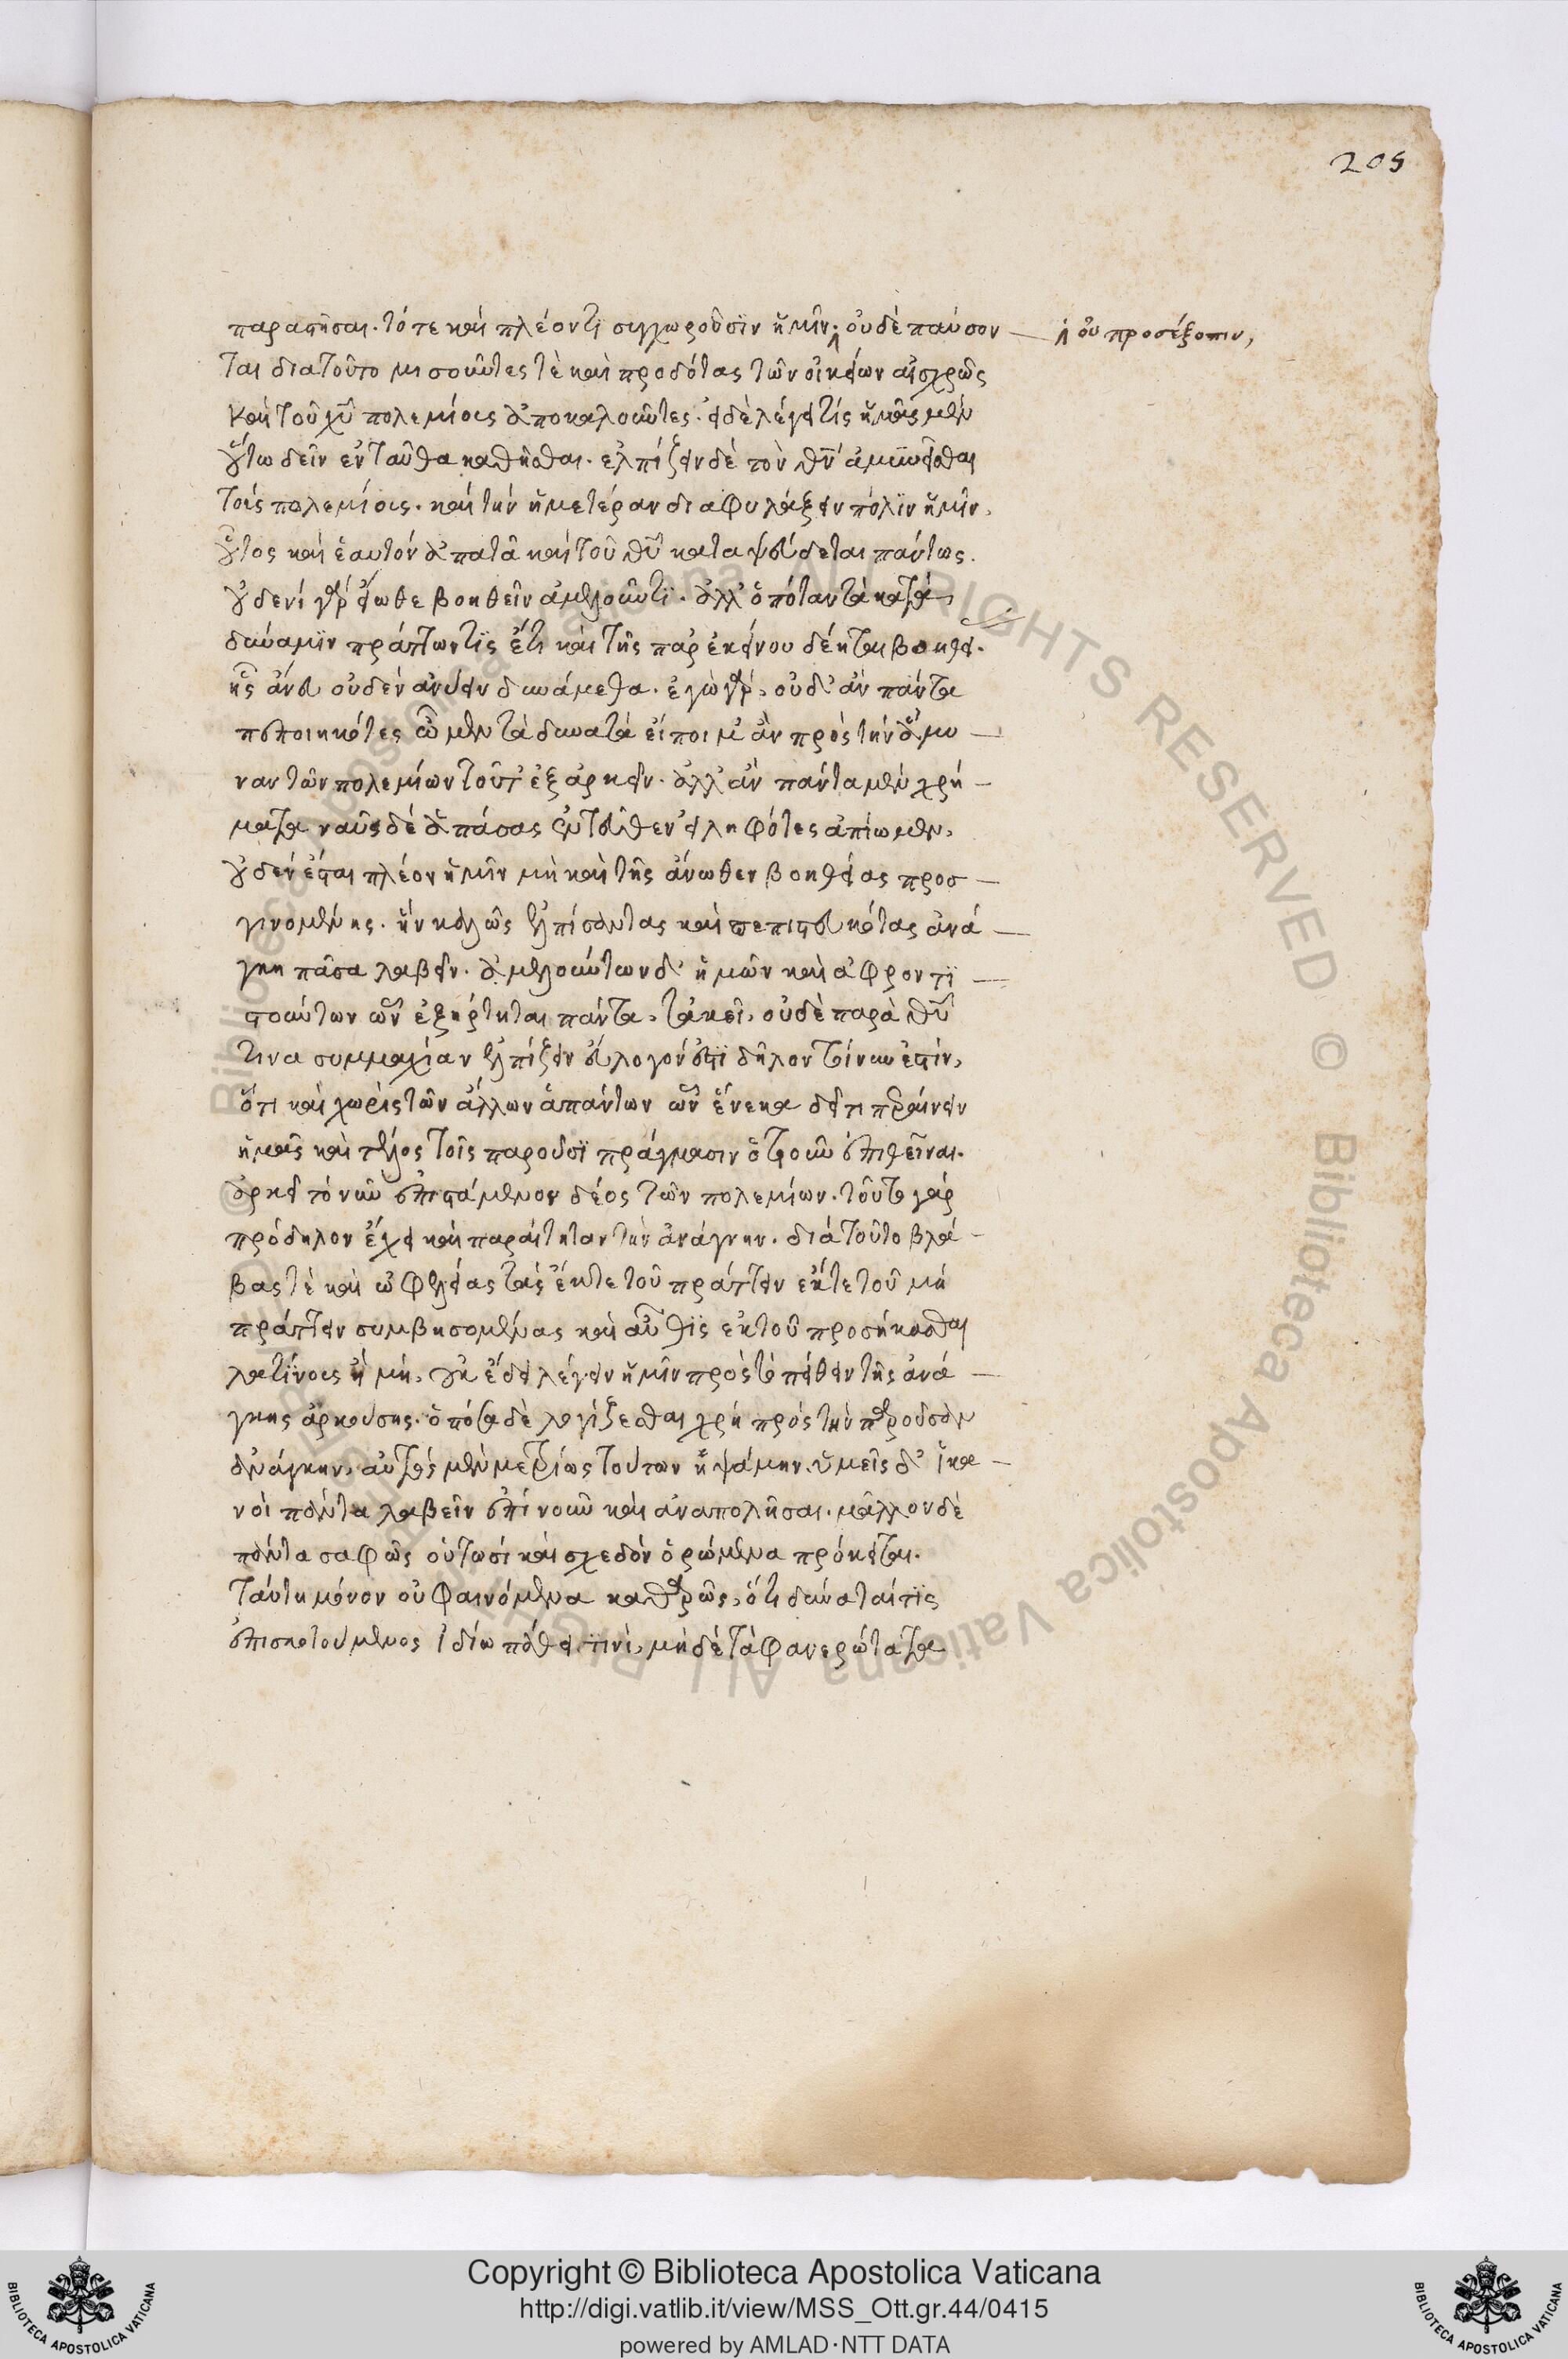 205
παραστῆσαι. τότε καὶ πλέοντϊ συγχωροῦσϊν ἡμῖν. οὐδὲ παύσον
οὐ προσέξουσιν,
ται διατοῦτο μισοῦντες τὲ καὶ προδότας τῶν οἰκείων αἰσχρῶς
καὶ τοῦ χῦ πολεμίοις ἀποκαλοῦντες. εἰ δὲ λέγει τίς ἡμᾶς μὲν
οὕτω δεῖν ἐνταῦθα καθῆσθαι. ἐλπίζειν δὲ τὸν θν ἀμυνεῖσθαι
τοῖς πολεμίοις. καὶ τὴν ἡμετέραν διαφυλάξειν πόλϊν ἡμῖν,
οὗτος καὶ ἑαυτὸν ἀπατᾶ καὶ τοῦ θῦ καταψεύδεται πάντως.
οὐδενὶ γὰρ εἴωθε βοηθεῖν ἀμελοῦντϊ. ἀλλ' ὁπόταν τὰ κατὰ
δύναμϊν πράττων τϊς ἔτι καὶ τῆς παρ' ἐκείνου δέηται βοηθεί
ης ἄνευ οὐδὲν ἀνύειν δυνάμεθα. ἐγὼ γὰρ, οὐδ' ἂν πάντα
πεποιηκότες ὦμεν τὰ δυνατὰ εἴποιμ' ἂν πρὸς τὴν ἄμυ
ναν τῶν πολεμίων τοῦτ' ἐξαρκεῖν. ἀλλ' ἂν πάντα μὲν χρή
ματα ναῦς δὲ ἁπάσας ἐντεῦθεν εἰληφότες ἀπίωμεν,
οὐδὲν ἔσται πλέον ἡμῖν μὴ καὶ τῆς ἄνωθεν βοηθείας προσ
γινομένης. ἣν καλῶς ἐλπίσαντας καὶ πεπιστευκότας ἀνά
γκη πᾶσα λαβεῖν. ἀμελούντων δ' ἡμῶν καὶ ἀφροντϊ
στούντων ὧν ἐξήρτηται πάντα, τἀκεῖ, οὐδὲ παρὰ θῦ
τινα συμμαχίαν ἐλπίζειν εὔλογόν ἐστϊ δῆλον τοίνυν ἐστίν,
ὅτι καὶ χωρὶς τῶν ἄλλων ἁπάντων ὧν ἕνεκα δεῖ τι περαίνειν
ἡμᾶς καὶ τέλος τοῖς παροῦσϊ πράγμασιν ὁτιοῦν ἐπιθεῖναι.
ἀρκεῖ τὸ νῦν ἐπιστάμενον δέος τῶν πολεμίων. τοῦτο γὰρ
πρόδηλον ἔχει καὶ παραίτηταν τὴν ἀνάγκην. διὰ τοῦτο βλά
βας τὲ καὶ ὠφελείας τὰς ἔκ τε τοῦ πράττειν ἔκ τε τοῦ μὴ
πράττειν συμβησομένας καὶ αὖθϊς ἐκ τοῦ προσήκασθαι
λατίνοις ἢ μὴ, οὐκ ἔδει λέγειν ἡμῖν πρὸς τὸ πείθειν τῆς ἀνά
γκης ἀρκούσης. ὁπόσα δὲ λογίζεσθαι χρὴ πρὸς τὴν παροῦσαν
ἀνάγκην, αὐτὸς μὲν μετρίως τούτων ἡψάμην, ὑμεῖς δ' ἱκα
νοὶ πάντα λαβεῖν ἐπὶ νοῦν καὶ ἀναπολῆσαι. μᾶλλον δὲ
πάντα σαφῶς οὑτωσὶ καὶ σχεδὸν ὁρώμενα πρόκειται.
ταύτη μόνον οὐ φαινόμενα καθαρῶς, ὅτι δύναταί τϊς
ἐπισκοτούμενος ἰδίω πάθει τινὶ, μὴ δὲ τὰ φανερώτατα
Copyright © Biblioteca Apostolica Vaticana
http://digi.vatlib.it/view/MSS_Ott.gr.44/0415
powered by AMLAD·NTT DATA